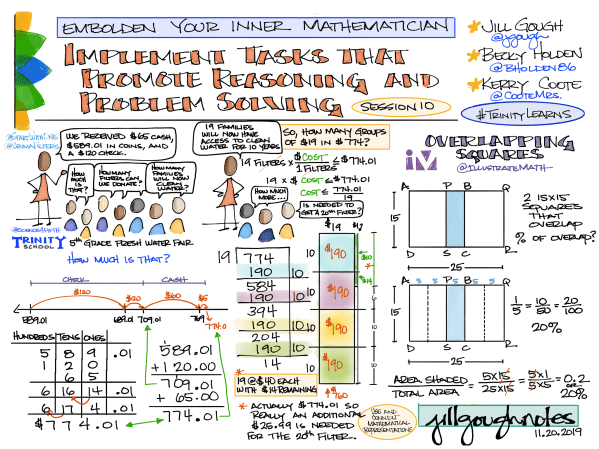 EMBOLDEN YOUR INNER MATHEMATICIAN
IMPLEMENT TASKS THAT
PROMOTE REASONING AND
PROBLEM SOLVING
SESSION 10
JILL GOUGH
@jgough
BECKY HOLDEN
@BHOLDEN86
KERRY COOTE
@COOTEMRS.
#TRINITYLEARNS
WE RECEIVED $65 CASH,
$589.01 IN COINS, AND
A $120 CHECK.
HOW
MUCH
IS
THAT?
HOW MANY
FILTERS CAN
WE DONATE?
HOW MANY
FAMILIES
WILL NOW
CLEAN
WATER?
TRINITY
SCHOOL
5TH GRADE FRESH WATER FAIR
HOW MUCH IS THAT?
19 FAMILIES
WILL NOW HAVE
ACCESS TO CLEAN
WATER FOR 10 YEARS
SO, HOW MANY GROUPS
OF $19 IN $774?
19 FILTERS × $ COST / 1 FILTERS ≤ $774.01
19 × $ COST ≤ $774.01
COST ≤ 774.01 / 19
HOW MUCH
MORE...
IS NEEDED TO
GET A 20TH FILTER?
OVERLAPPING
SQUARES
@ILLUSTRATEMATH
A P B Q
15
D S C R
25
2 15×15
SQUARES
THAT
OVERLAP
% OF OVERLAP?
A 5 5 P B 5 5 Q
15
D S C R
25
1/5 = 10/50 = 20/100
20%
AREA SHADED / TOTAL AREA = 5×15 / 25×15 = 5×1 / 5×5 = 0.2 or 20%
CHECK
CASH
$120
$20
$60
$5
589.01
689.01
709.01
769
774.01
HUNDREDS TENS ONES
5 8 9 .01
1 2 0
6 5
6 16 14 .01
6 17 4 .01
$774.01
589.01
+ 120.00
709.01
+ 65.00
774.01
19 774
190 10
584
190 10
394
190 10
204
190 10
14
19 @ $40 EACH
WITH $14 REMAINING
$19
10 $190
10 $190
10 $190
10 $190
* ACTUALLY $774.01 SO
REALLY AN ADDITIONAL
$25.99 IS NEEDED
FOR THE 20TH FILTER.
USE AND
CONNECT
MATHEMATICAL
REPRESENTATIONS
jillgoughnotes
11.20.2019